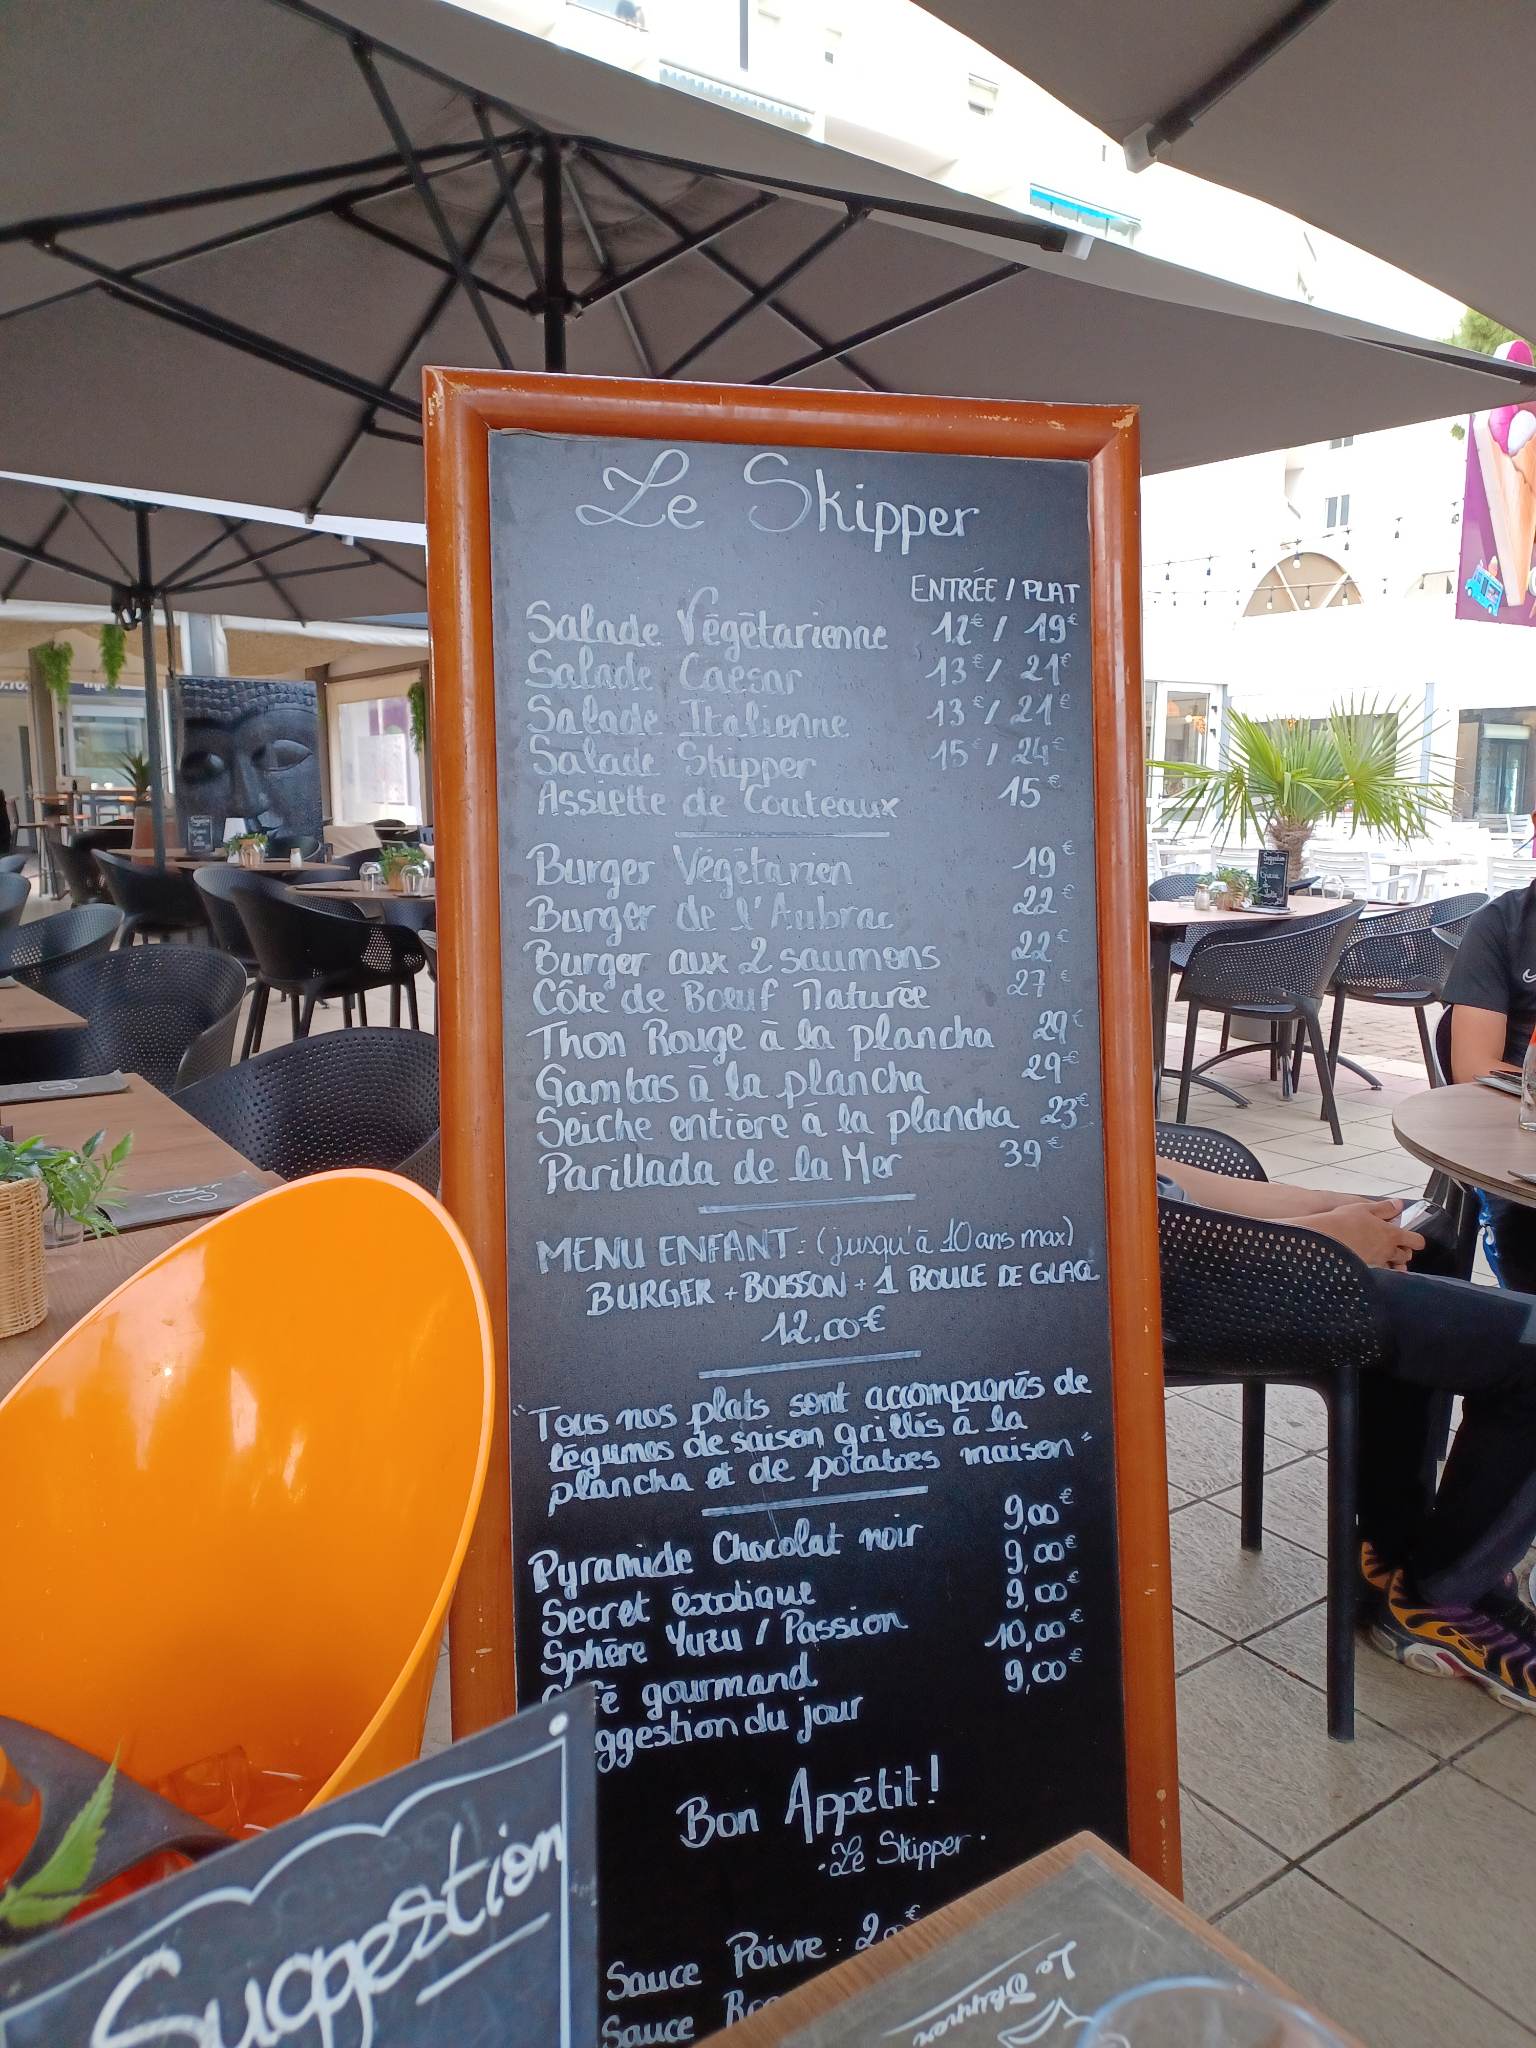 Le Skipper
ENTRÉE / PLAT
Salade Végétarienne 12€ / 19€
Salade Caesar 13€ / 21€
Salade Italienne 13€ / 21€
Salade Skipper 15€ / 24€
Assiette de Couteaux 15€
Burger Végétarien 19€
Burger de l'Aubrac 22€
Burger aux 2 saumons 22€
Côte de Bœuf Maturée 27€
Thon Rouge à la plancha 29€
Gambas à la plancha 29€
Seiche entière à la plancha 23€
Parillada de la Mer 39€
MENU ENFANT : (jusqu'à 10 ans max)
BURGER + BOISSON + 1 BOULE DE GLACE
12.00€
"Tous nos plats sont accompagnés de
légumes de saison grillés à la
plancha et de potatoes maison"
Pyramide Chocolat noir 9,00€
Secret éxotique 9,00€
Sphère Yuzu / Passion 9,00€
Café gourmand 10,00€
ggestion du jour 9,00€
Bon Appétit!
.Le Skipper.
Sauce Poivre : 2,00€
Sauce
Suggestion
Le Skipper